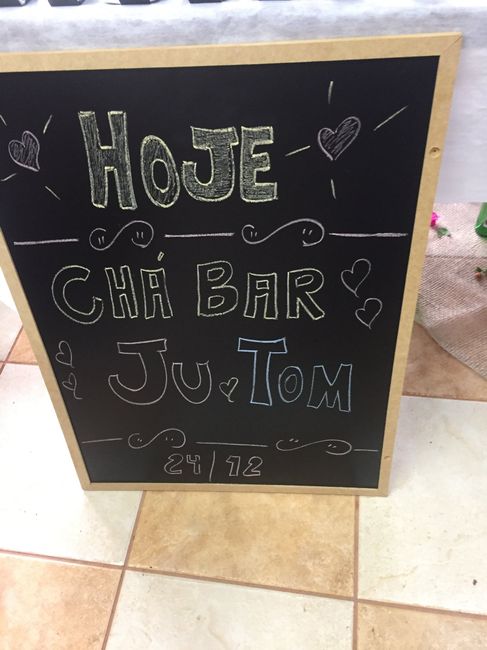 HOJE
CHÁ BAR
JU TOM
24/12